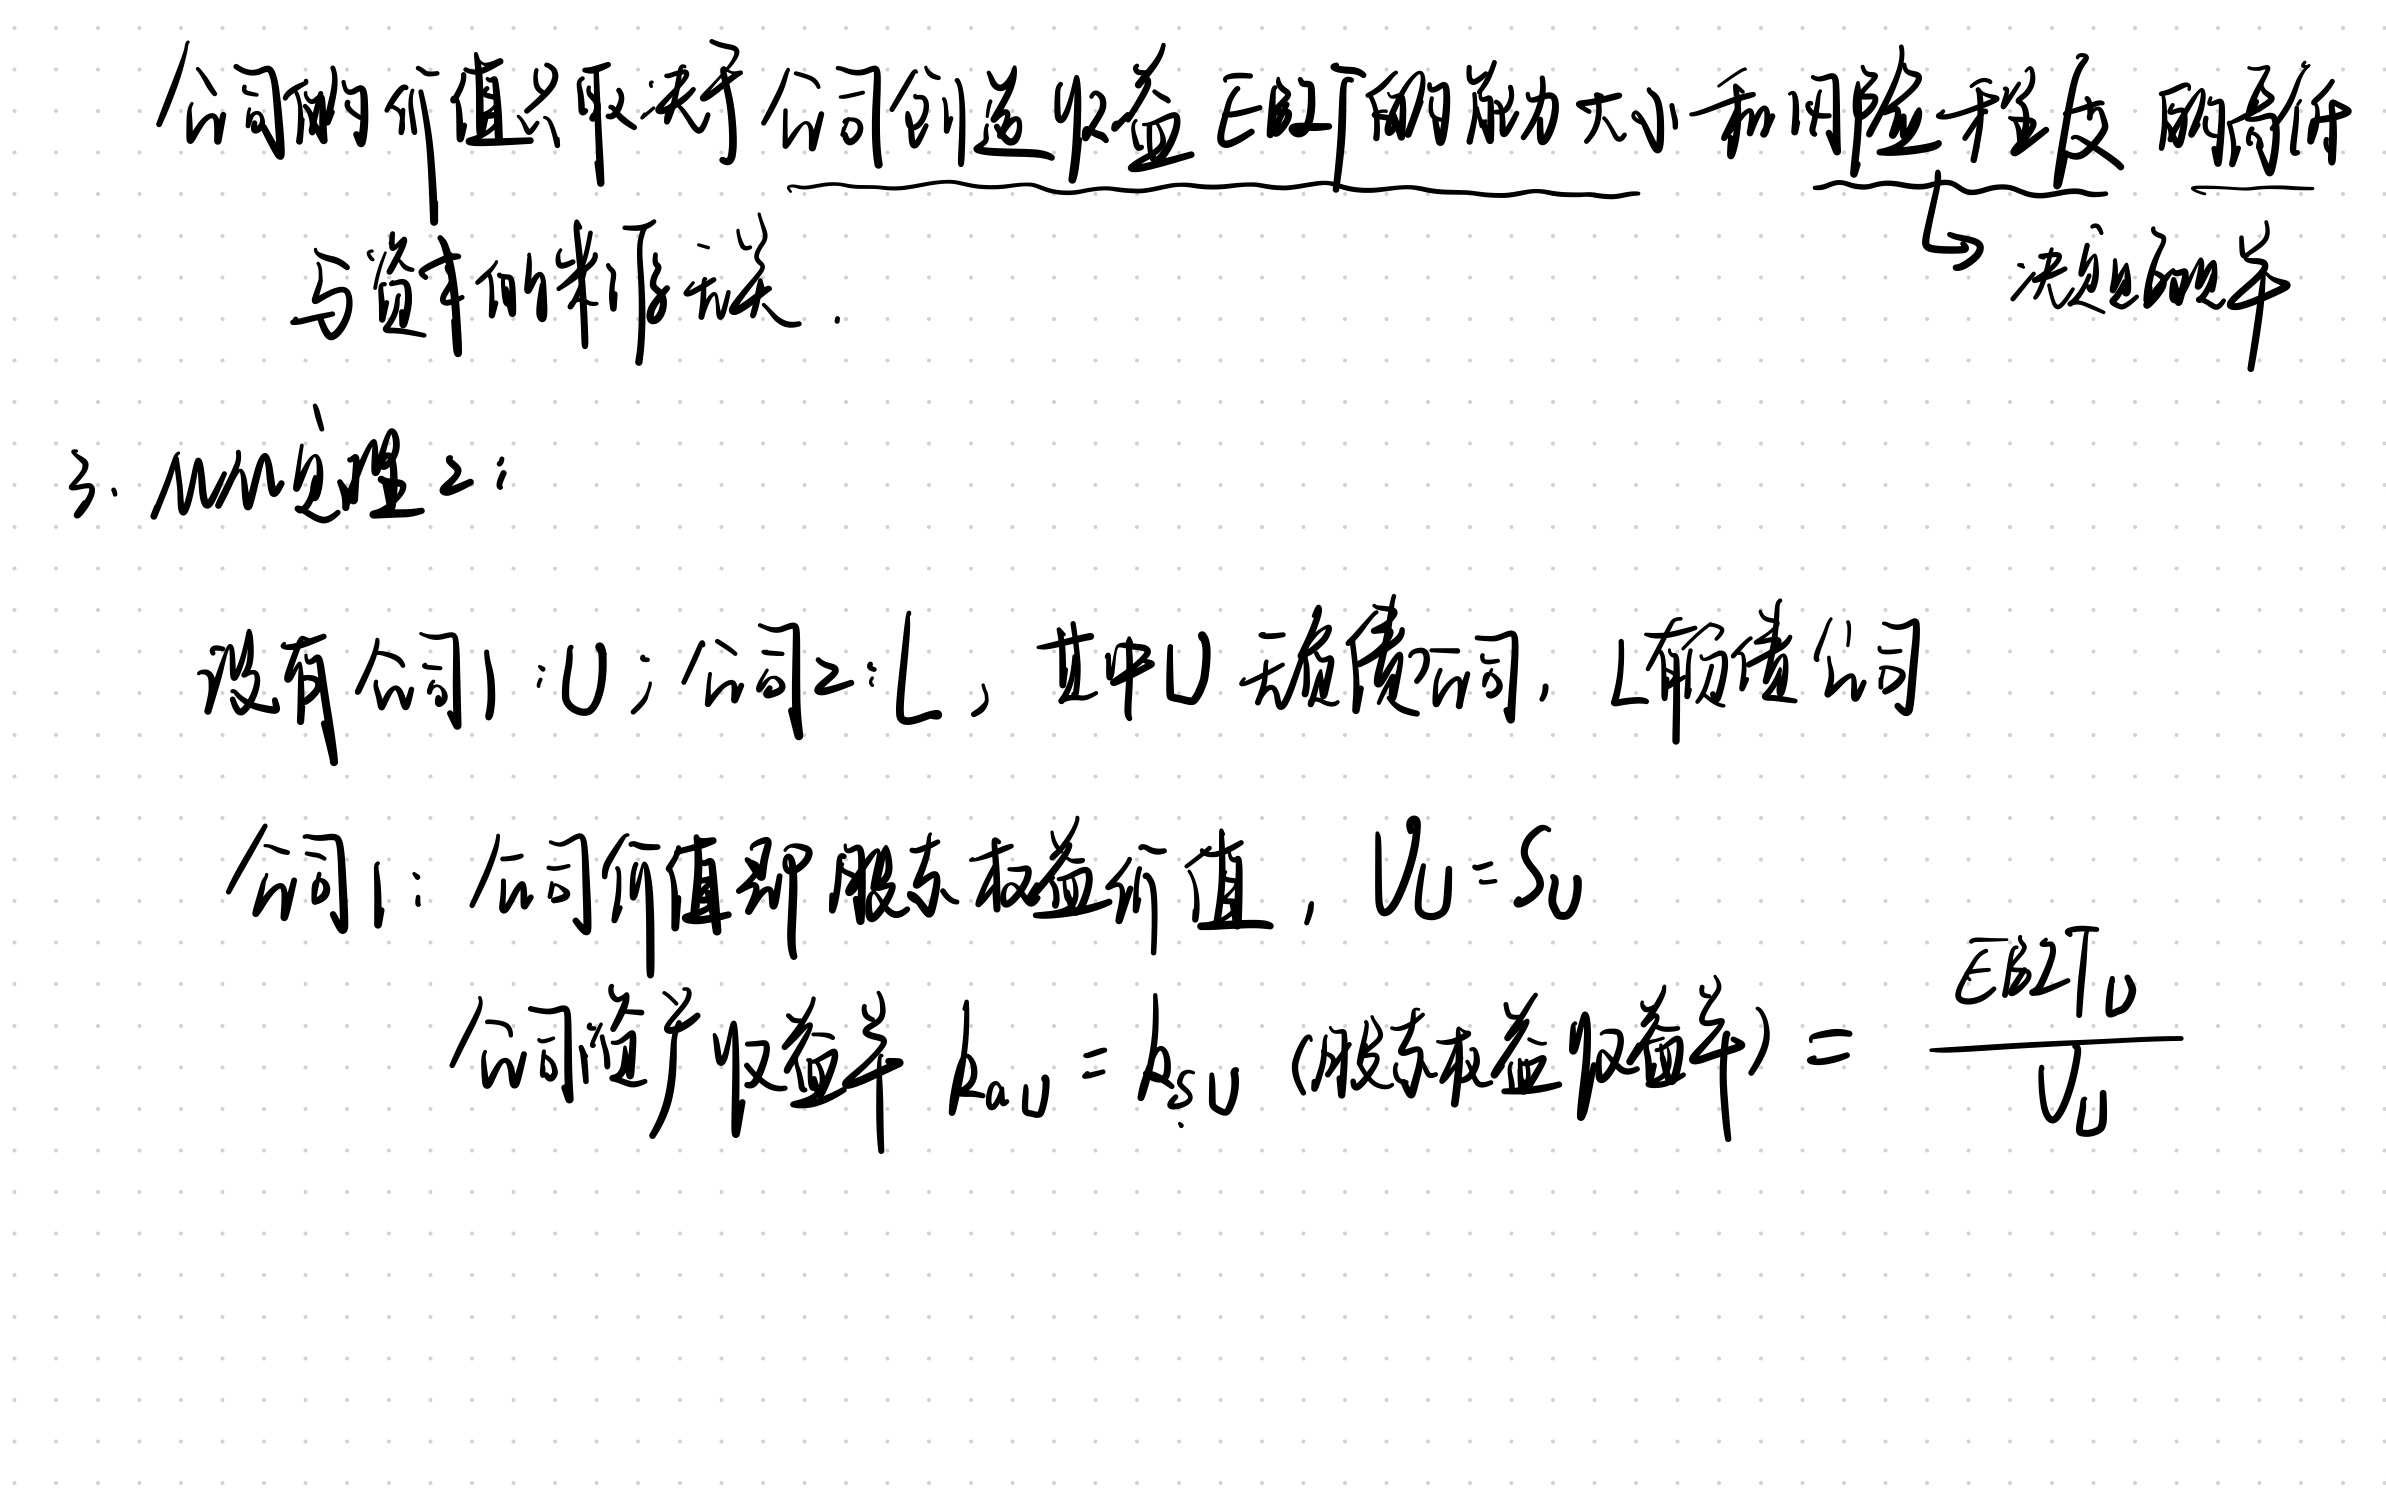 公司的价值只取决于公司创造收益EBIT的能力大小和风险程度 而合作
与资本结构无关.
决定贴现率
3. MM定理2:
设有公司1:U; 公司2:L, 其中U无负债公司, L有负债公司
公司1: 公司价值即股东权益价值, V_U=S_U
公司资产收益率 k_{aU} = k_{sU} (股东权益收益率) = EBIT_U / V_U